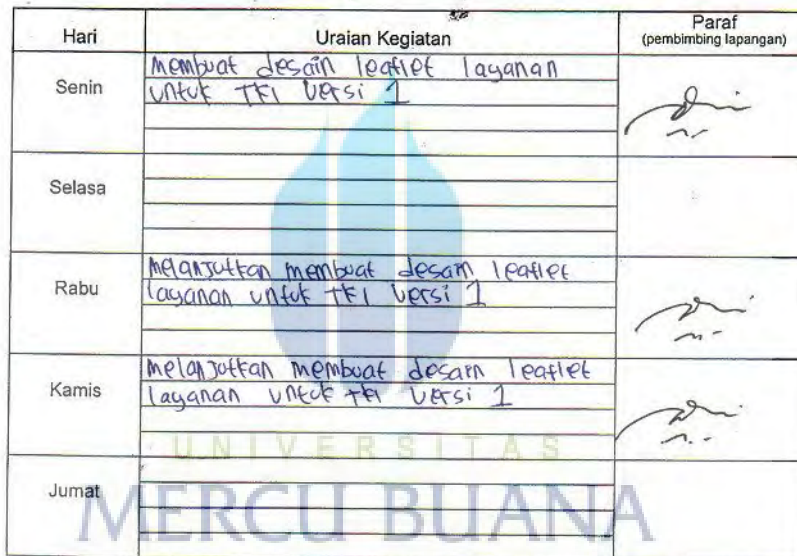 Hari Uraian Kegiatan Paraf
(pembimbing lapangan)
Senin
membuat desain leaflet layanan
untuk TKI versi 1
Selasa
Rabu
melanjutkan membuat desain leaflet
layanan untuk TKI versi 1
Kamis
melanjutkan membuat desain leaflet
layanan untuk TKI versi 1
UNIVERSITAS
Jumat
MERCU BUANA